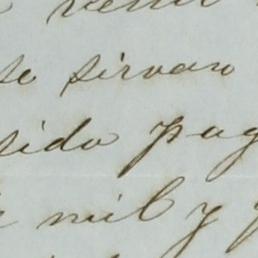 se sirvan
sido pag
mil y